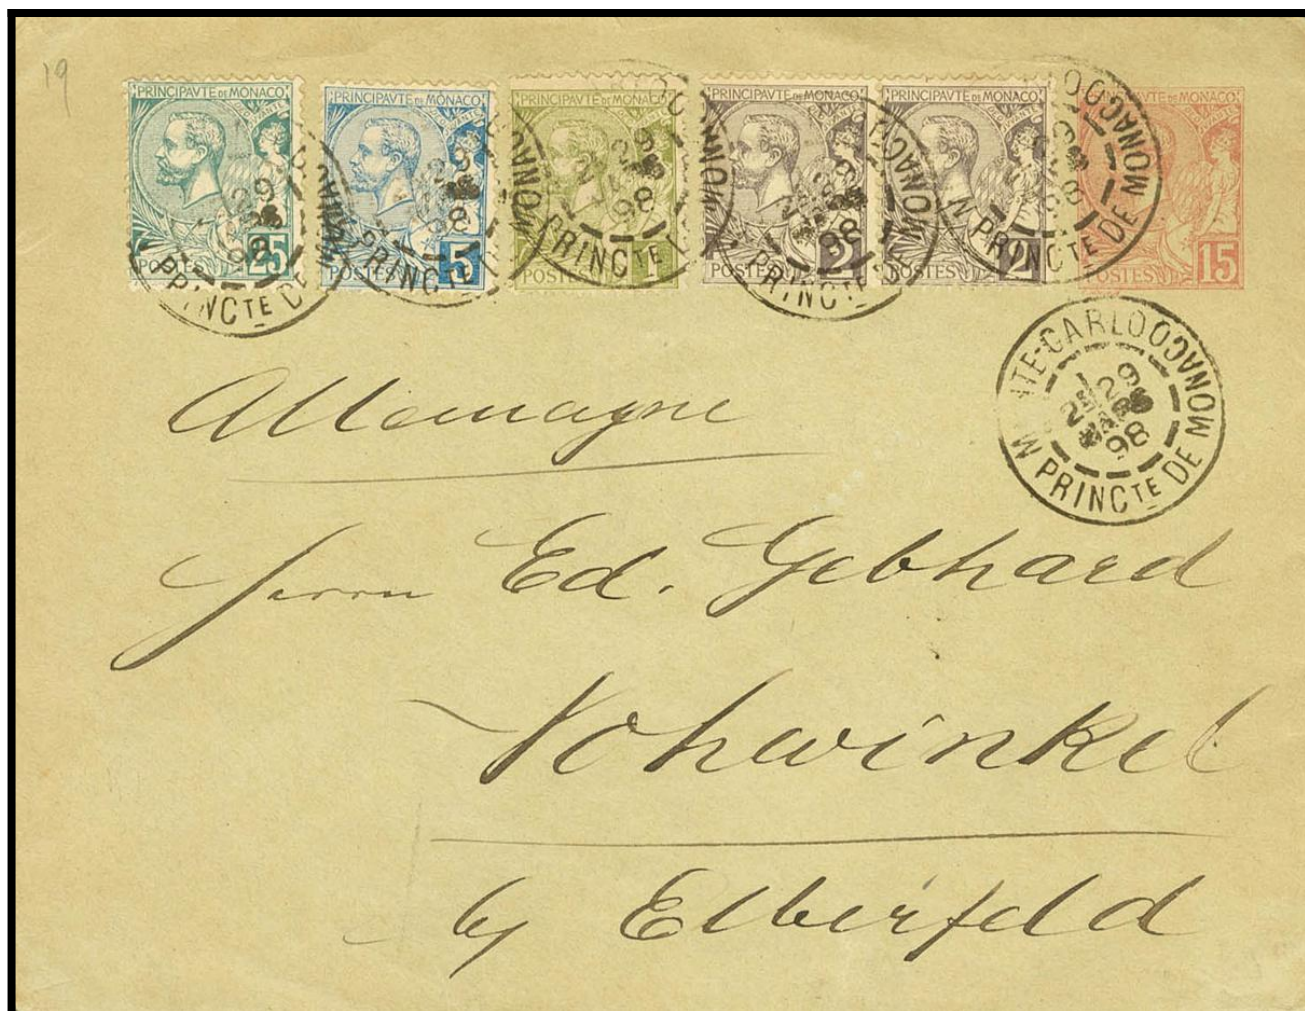 19
PRINCIPAVTE DE MONACO
POSTES 25
PRINCIPAVTE DE MONACO
POSTES 5
PRINCIPAVTE DE MONACO
POSTES 1
PRINCIPAVTE DE MONACO
POSTES 2
PRINCIPAVTE DE MONACO
POSTES 2
DE MONACO
POSTES 15
MONTE-CARLO
98
PRINCTE DE MONACO
Allemagne
Herrn Ed. Gebhard
Vohwinkel
by Elberfeld